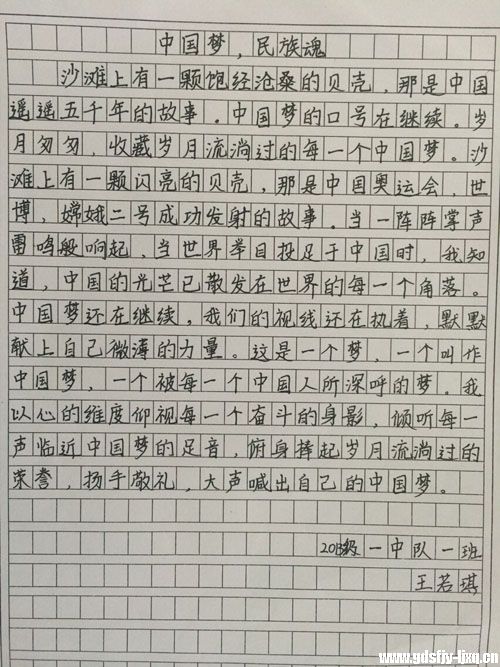 中国梦，民族魂
沙滩上有一颗饱经沧桑的贝壳，那是中国
遥遥五千年的故事。中国梦的口号在继续。岁
月匆匆，收藏岁月流淌过的每一个中国梦。沙
滩上有一颗闪亮的贝壳，那是中国奥运会，世
博，嫦娥二号成功发射的故事。当一阵阵掌声
雷鸣般响起，当世界举目投足于中国时，我知
道，中国的光芒已散发在世界的每一个角落。
中国梦还在继续，我们的视线还在执着，默默
献上自己微薄的力量。这是一个梦，一个叫作
中国梦，一个被每一个中国人所深呼的梦。我
以心的维度仰视每一个奋斗的身影，倾听每一
声临近中国梦的足音，俯身捧起岁月流淌过的
荣誉，扬手敬礼，大声喊出自己的中国梦。
2013级一中队一班
王若琪
www.gdsfjy-ljxq.cn